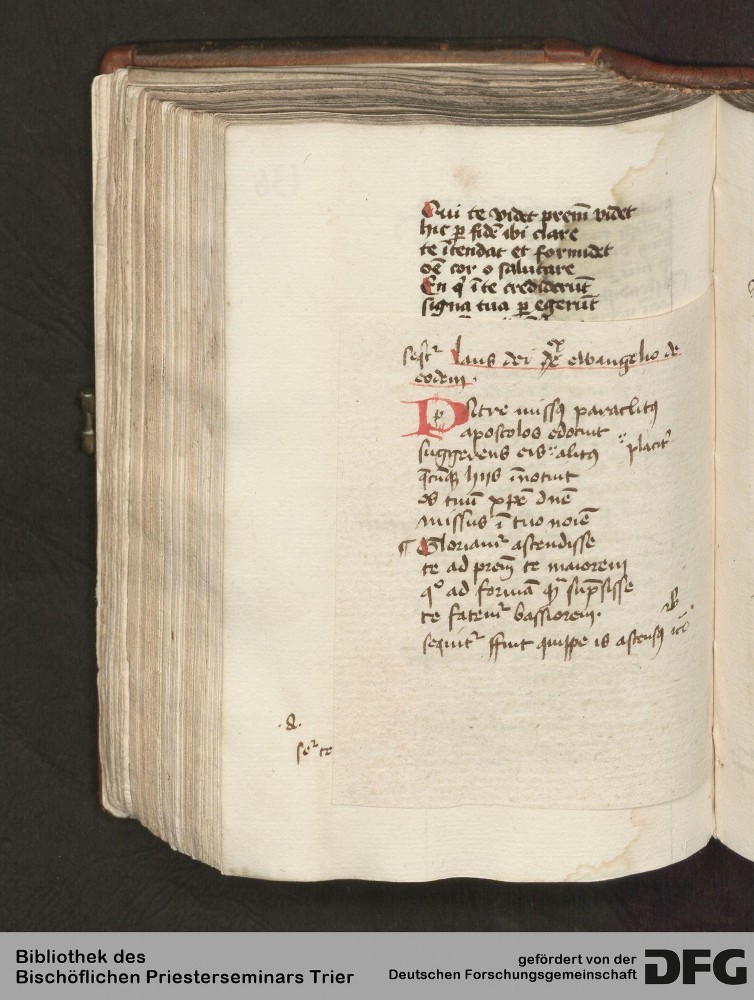 Qui te videt prem̄ videt
hic ꝑ fidē ibi clare
te ītendat et formidet
oē cor o salutare
En q̇ īte crediderūt
signa tua ꝑ egerūt
seqt᷑ laus dei ex ewangelio de
eodem
Patre missꝯ paraclitꝯ
apostolos edocuit
suggerens eis alitꝯ placit᷑
hijs īnotuit
os tuū xp̄e dn̄e
missus ī tuo noīe
¶ Gloriam᷑ ascendisse
te ad prem̄ te maiorem
qͦ ad formā sūpsisse
te fatem᷑ bassiorem.
sequit᷑ ffuit quippe is ascensꝯ
.a.
te
Bibliothek des
Bischöflichen Priesterseminars Trier
gefördert von der
Deutschen Forschungsgemeinschaft
DFG